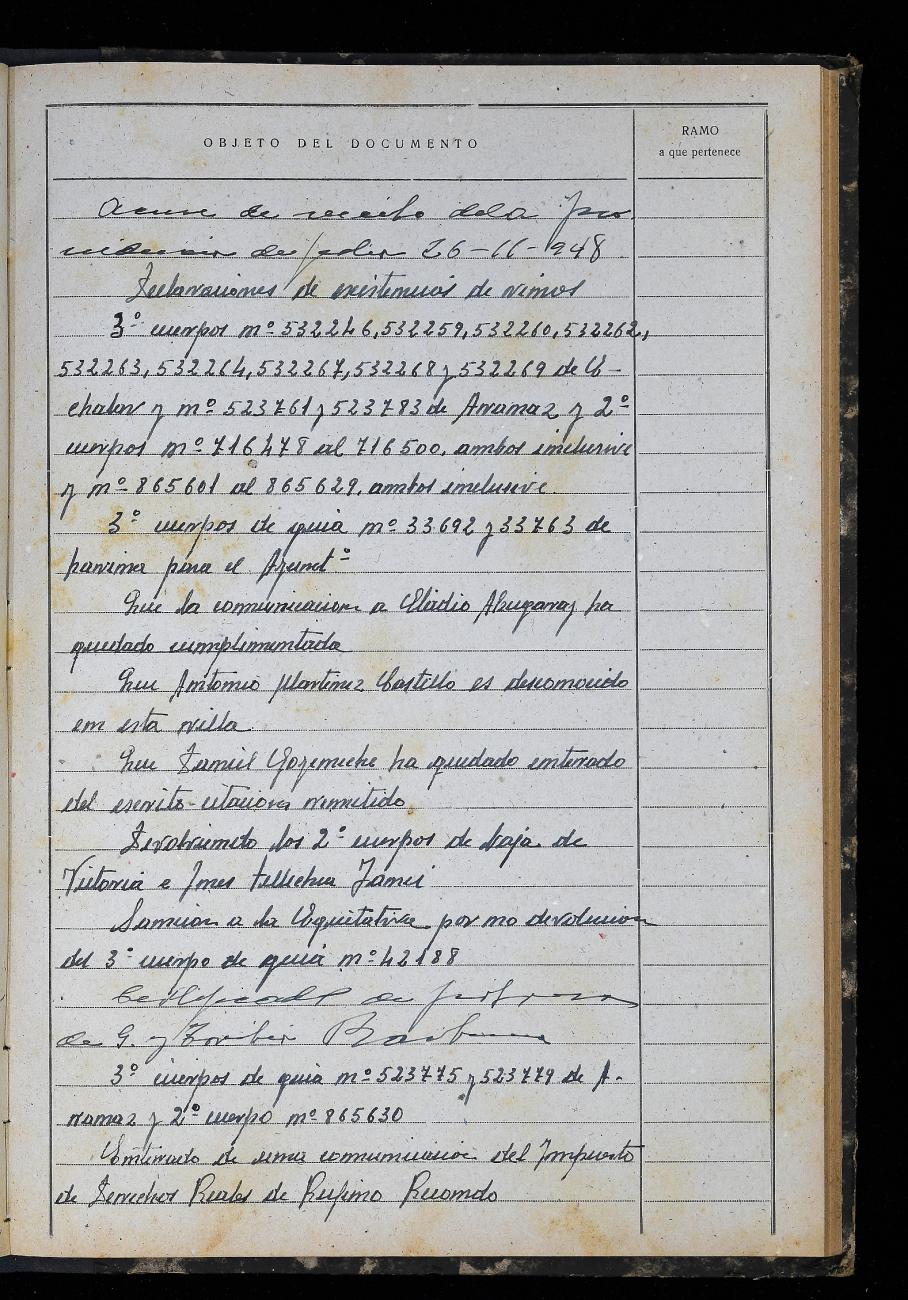 OBJETO DEL DOCUMENTO
RAMO
a que pertenece
Acuse de recibo dela pro
videncia de 26-11-948
Declaraciones de existencias de vinos
3º cuerpos nº 532246, 532259, 532260, 532262,
532263, 532264, 532267, 532268 y 532269 de E-
chalar y nº 523761 y 523783 de Aranaz y 2º
cuerpos nº 716478 al 716500, ambos inclusive
y nº 865601 al 865629, ambos inclusive.
3º cuerpos de guia nº 33692 y 33763 de
harina para el Ayuntº
Que la comunicacion a Eladio ha
quedado cumplimentada
Que Antonio Martinez Castillo es desconocido
en esta villa.
Que Daniel Goyeneche ha quedado enterado
del escrito citacion remitido
Devolviendo los 2º cuerpos de baja de
Victoria e Ines Tellechea Janci
Sancion a la Equitativa por no devolucion
del 3º cuerpo de guia nº 42188
Certificado de
de G. y Toribio
3º cuerpos de guia nº 523775 y 523779 de A-
ranaz y 2º cuerpo nº 865630
Enterado de una comunicacion del Impuesto
de Derechos Reales de Rufino Recondo